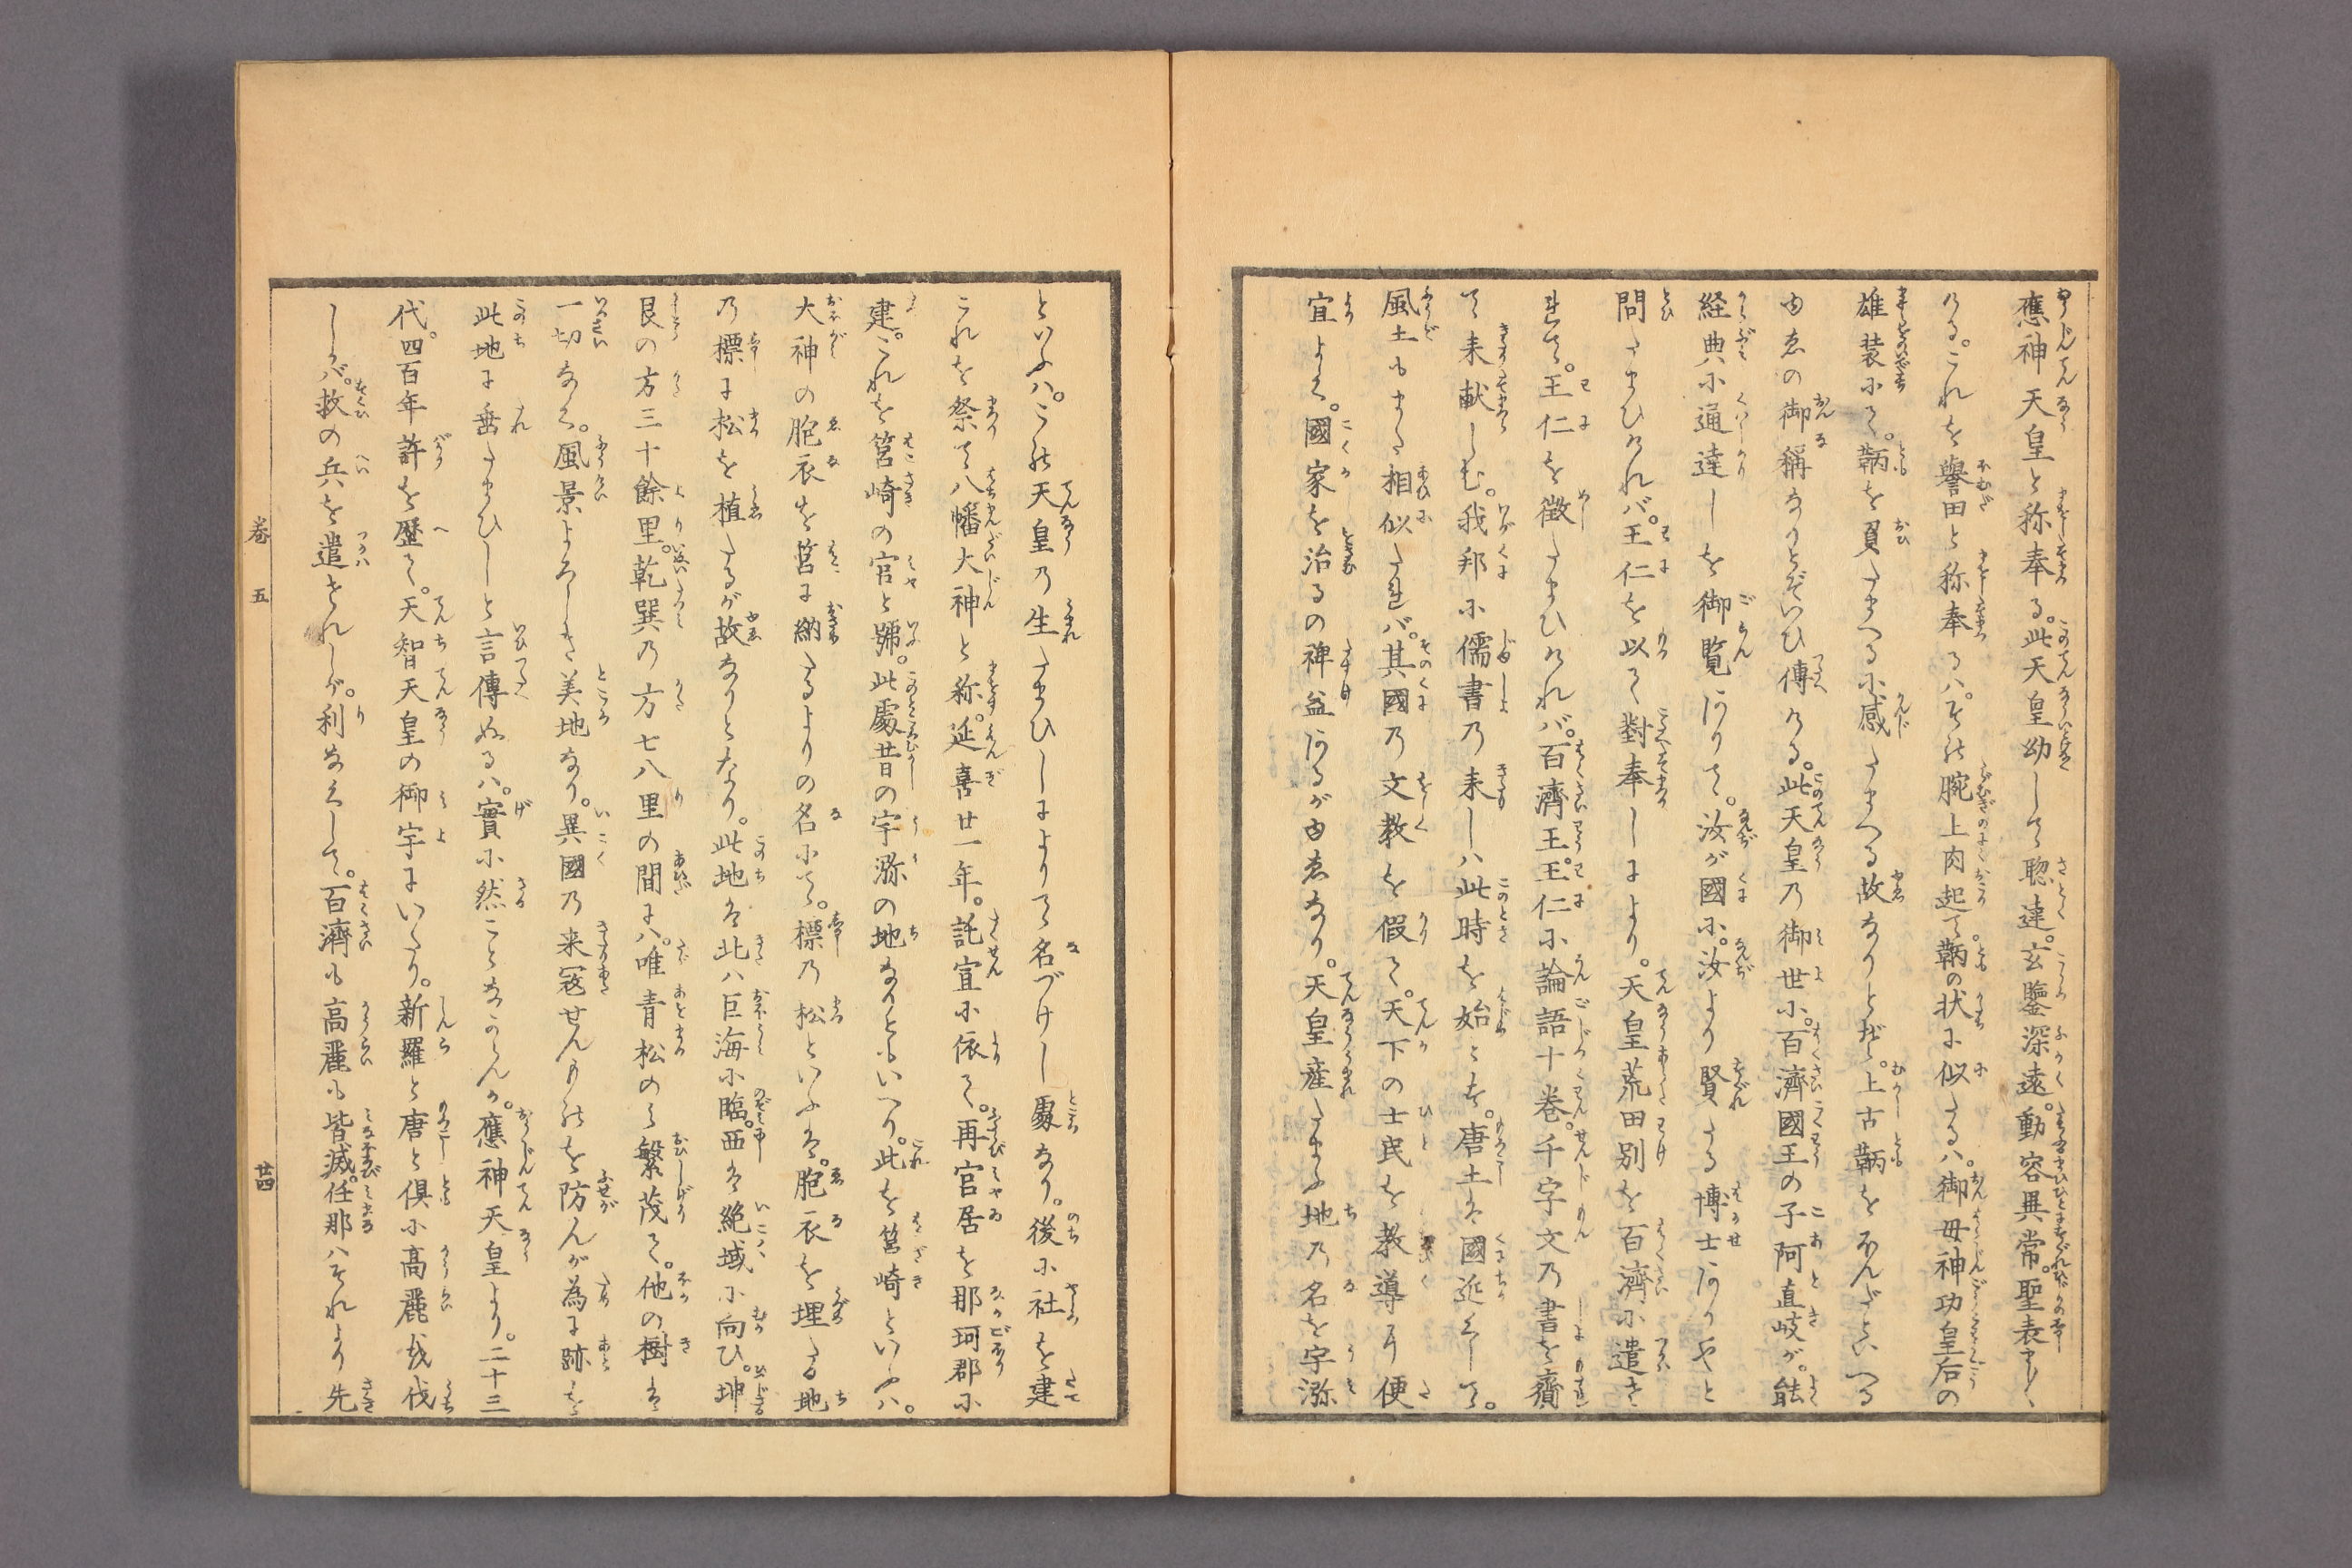 應神天皇と称奉る。此天皇幼して聡達。玄鑒深遠。動容異常。聖表まし〳〵
ける。これを譽田と称奉るハ。その腕上肉起て。鞆の状に似たるハ。御母神功皇后の
雄装にて。鞆を負たまへるに感たまへる故なりとぞ。上古鞆をほんだといへる
ゆゑの御稱なりとぞいひ傳ける。此天皇の御世に。百済國王の子阿直岐が。能
経典に通達しを御覧ありて。汝が國に。汝より賢たる博士ありやと
問たまひけれバ。王仁を以て對奉しにより。天皇荒田別を百濟に遣さ
れて。王仁を徴たまひけれバ。百濟王。王仁に論語十巻。千字文の書を齎
て来献しむ。我邦に儒書の来しハ此時を始とす。唐土は國近くして。
風土もまた相似たれバ。其國の文教を假て。天下の士民を教導す便
宜よく。國家を治るの裨益あるがゆゑなり。天皇産たまふ地の名を宇瀰
といふハ。この天皇の生たまひしによりて名づけし處なり。後に社を建
これを祭て八幡大神と称。延喜廿一年。託宣に依て。再宮居を那珂郡に
建。これを筥崎の宮と號。此處昔の宇瀰の地なりともいへり。此を筥崎といふハ。
大神の胞衣を筥に納たるよりの名にて。標の松といふは。胞衣を埋たる地
の標に松を植たるが故なりとなり。此地は北ハ巨海に臨。西は絶域に向ひ。坤
艮の方三十餘里。乾巽の方七八里の間にハ。唯青松のミ繁茂て。他の樹は
一切なく。風景よろしき美地なり。異國の来寇せんものを防んが為に跡を
此地に垂たまひしと言傳ぬるハ。實に然ことならんか。應神天皇より。二十三
代。四百年許を歴て。天智天皇の御宇にいたり。新羅と唐と倶に高麗を伐
しかバ。救の兵を遣されしが。利なくして。百濟も高麗も皆滅。任那ハそれより先
巻五
廿四